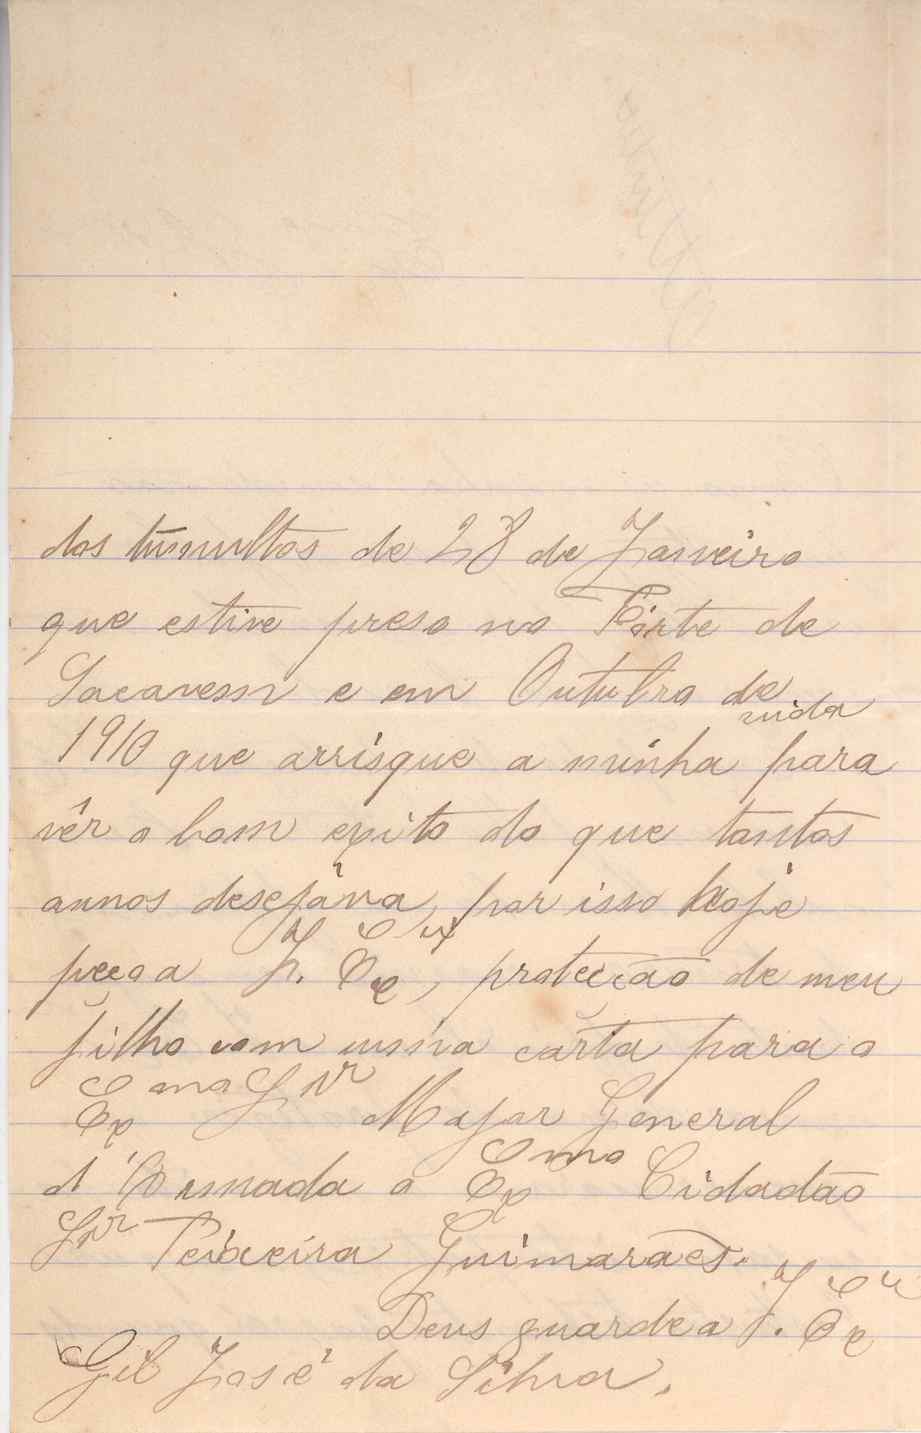 dos tumultos de 28 de Janeiro
que estive preso no Fórte de
Sacavem e em Outubro de
1910 que arrisque a minha vida para
vêr o bom exito do que tantos
annos desejáva, por isso hoje
peço a V. Ex.ª, proteção de meu
filho com uma carta para o
Ex.mo Snr Major General
d'Armada o Ex.mo Cidadão
Snr Teixeira Guimarães.
Deus guarde a V. Ex.ª
Gil José da Silva.